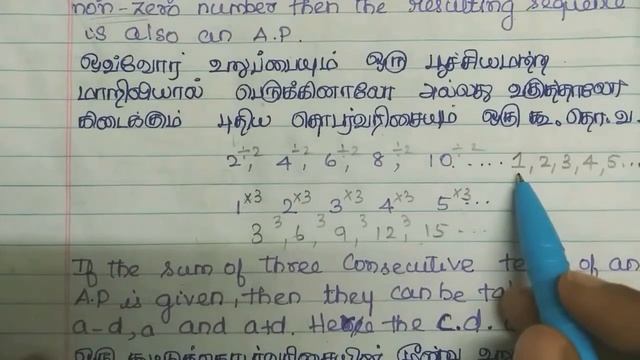 non-zero number then the resulting sequence
is also an A.P.
ஒவ்வோர் உறுப்பையும் ஒரு பூச்சியமற்ற
மாறிலியால் பெருக்கினாலோ அல்லது வகுத்தாலோ
கிடைக்கும் புதிய தொடர்வரிசையும் ஒரு கூ.தொ.வ.
2÷2, 4÷2, 6÷2, 8÷2, 10÷2..... 1, 2, 3, 4, 5...
1×3 2×3 3×3 4×3 5×3...
3 3, 6, 3 9, 3 12, 3 15 ...
If the sum of three consecutive of an
A.P is given, then they can be
a-d, a and a+d. the C.d.